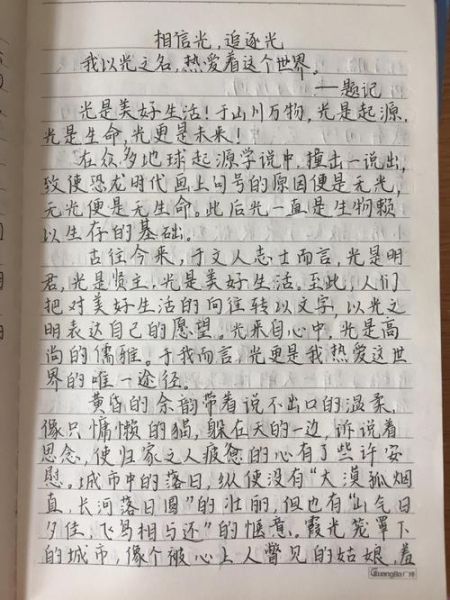 相信光，追逐光
我以光之名，热爱着这个世界。
——题记
光是美好生活！于山川万物，光是起源，
光是生命，光更是未来！
在众多地球起源学说中，撞击一说出，
致使恐龙时代画上句号的原因便是无光，
无光便是无生命。此后光一直是生物赖
以生存的基础。
古往今来，于文人志士而言，光是明
君，光是贤主，光是美好生活。至此，人们
把对美好生活的向往转以文字，以光之
明表达自己的愿望。光来自心中，光是高
尚的儒雅。于我而言，光更是我热爱这世
界的唯一途径。
黄昏的余韵带着说不出口的温柔，
像只慵懒的猫，躲在天的一边，诉说着
思念，使归家之人疲惫的心有了些许安
慰。城市中的落日，纵使没有“大漠孤烟
直，长河落日圆”的壮丽，但也有“山气日
夕佳，飞鸟相与还”的惬意。霞光笼罩下
的城市，像个被心上人瞥见的姑娘，羞
GuangBo广博